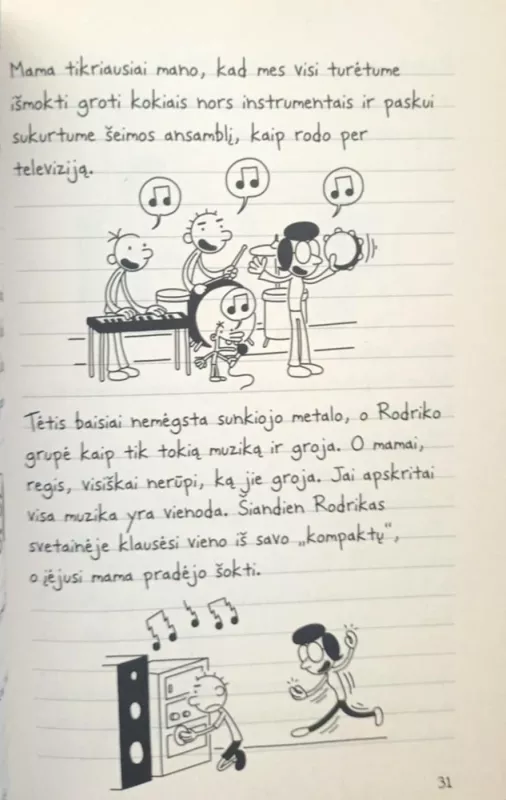 Mama tikriausiai mano, kad mes visi turėtume
išmokti groti kokiais nors instrumentais ir paskui
sukurtume šeimos ansamblį, kaip rodo per
televiziją.
Tėtis baisiai nemėgsta sunkiojo metalo, o Rodriko
grupė kaip tik tokią muziką ir groja. O mamai,
regis, visiškai nerūpi, ką jie groja. Jai apskritai
visa muzika yra vienoda. Šiandien Rodrikas
svetainėje klausėsi vieno iš savo „kompaktų“,
o įėjusi mama pradėjo šokti.
31